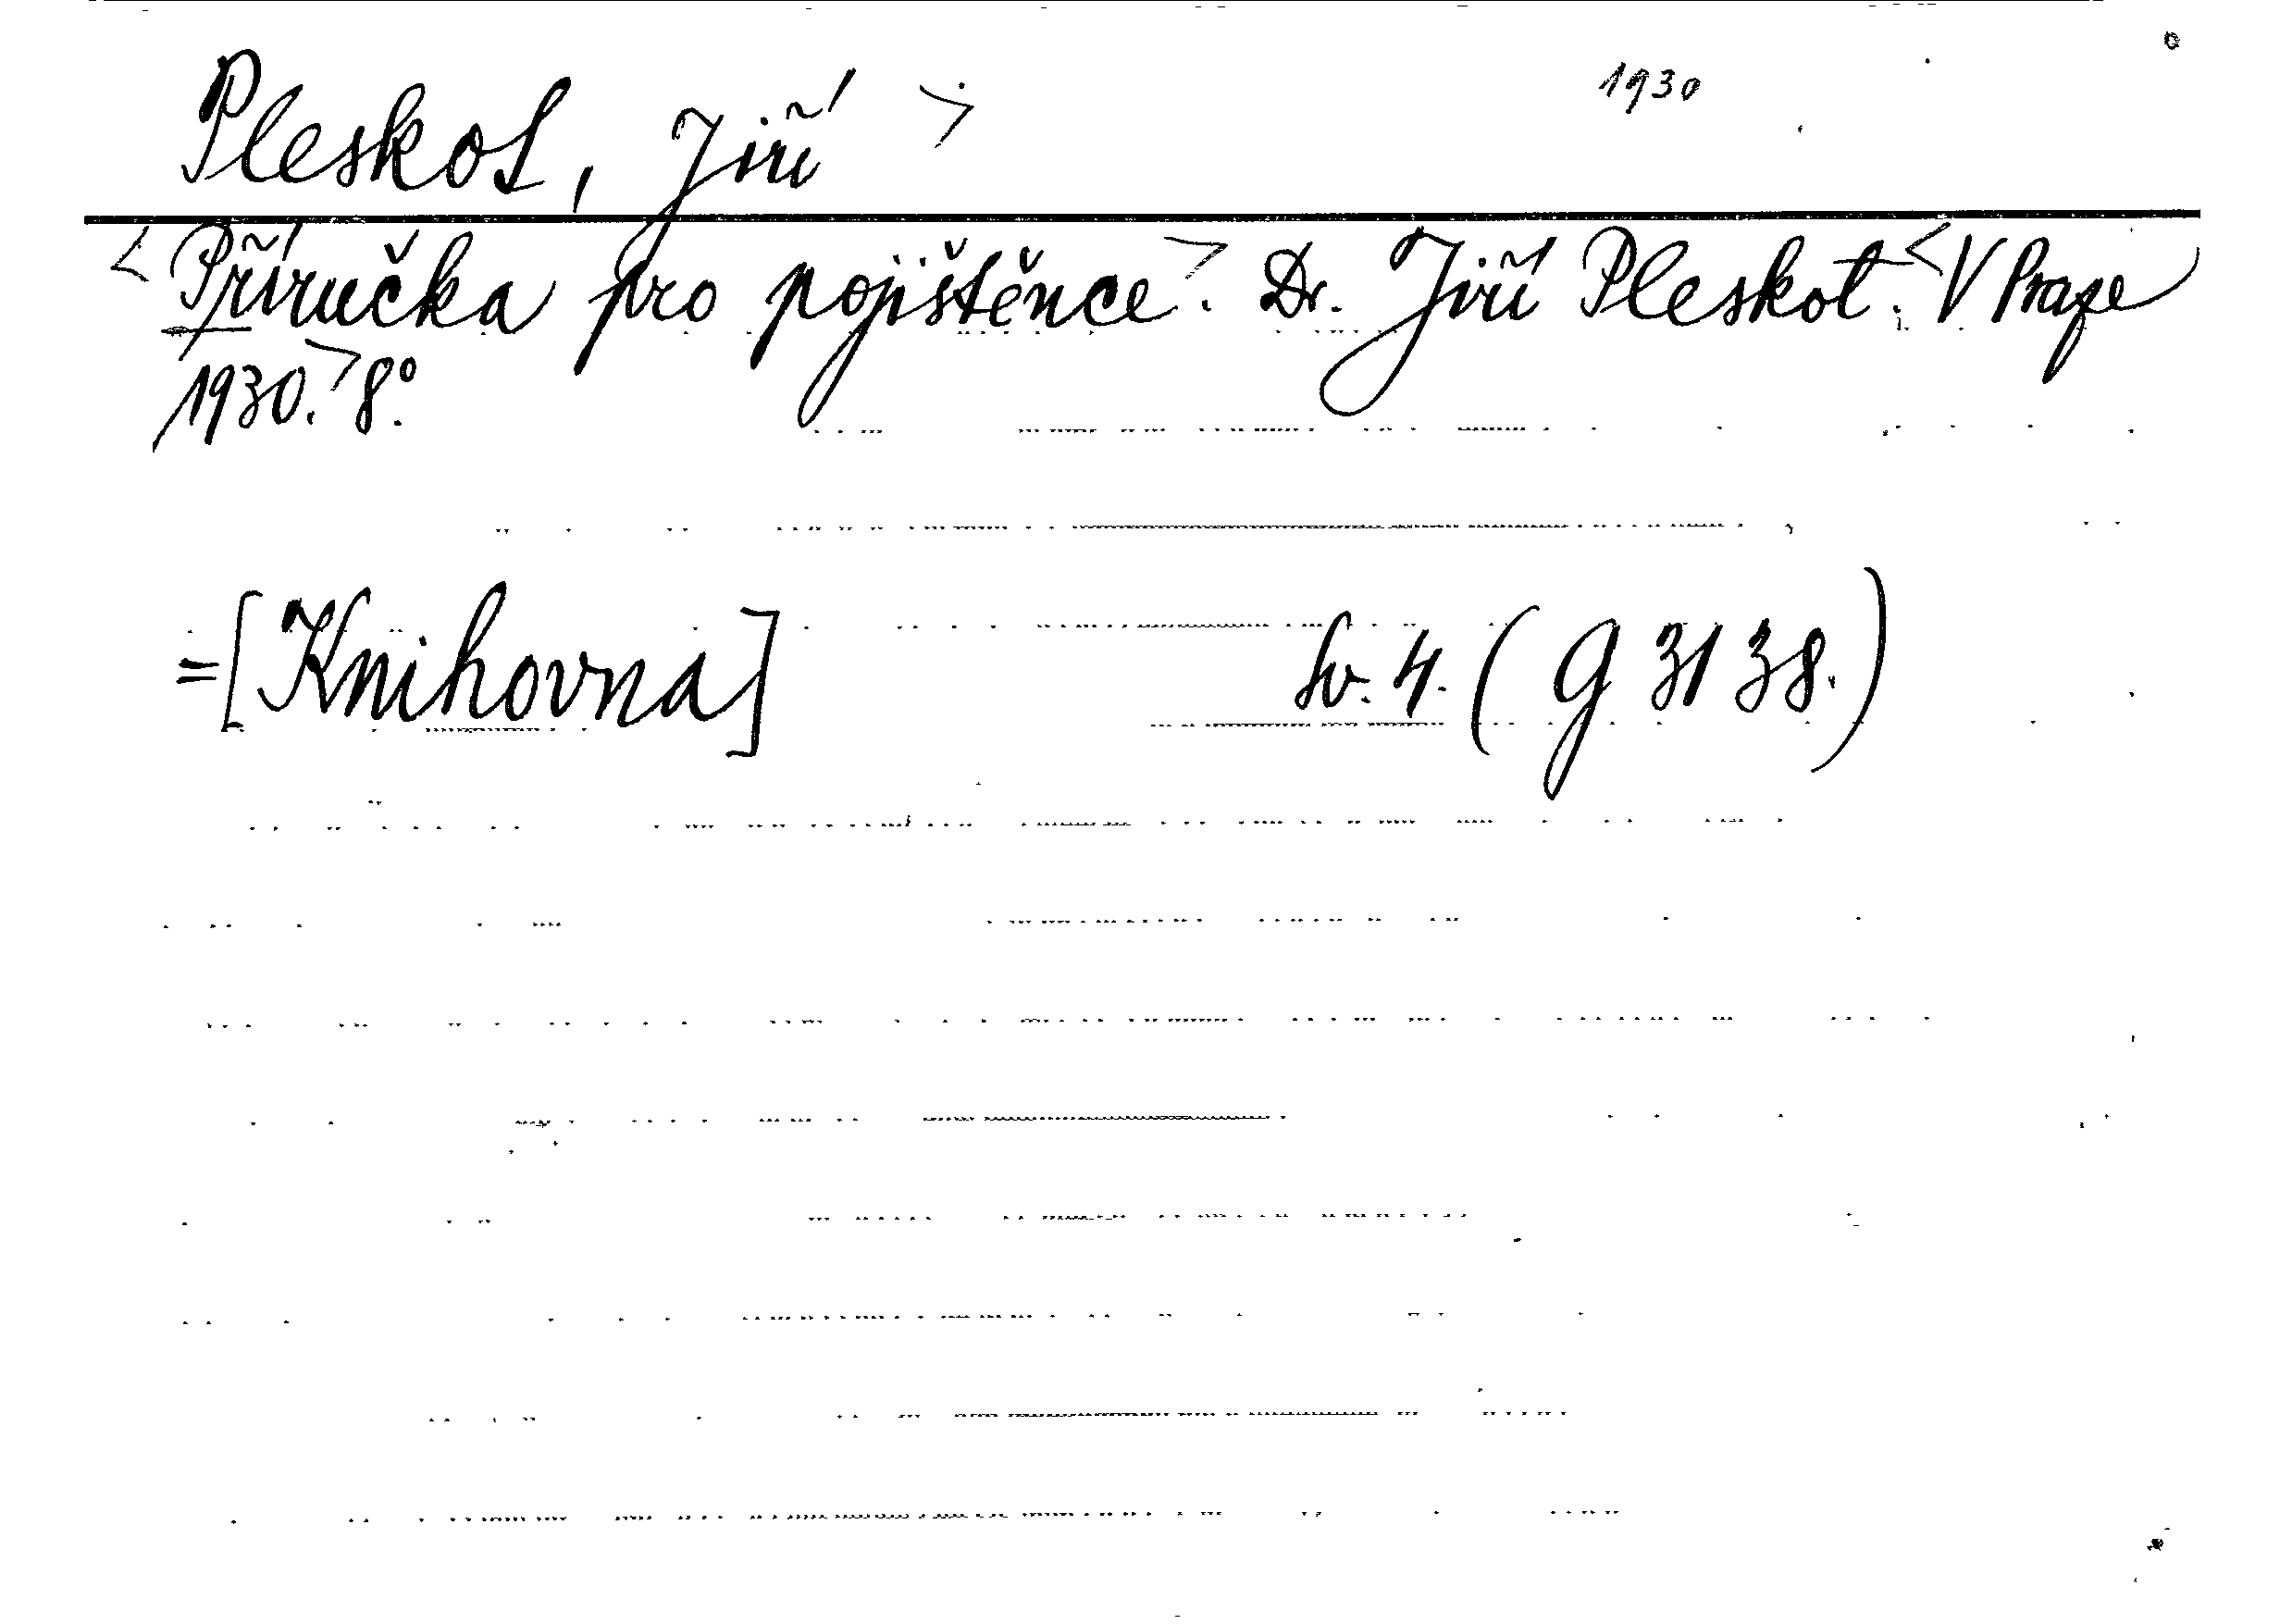 Pleskot, Jiří > 1930
<Příručka pro pojištěnce>. Dr. Jiří Pleskot. <V Praze
1930.> 8°.
=[Knihovna] Sv. 4. (G 3138.)